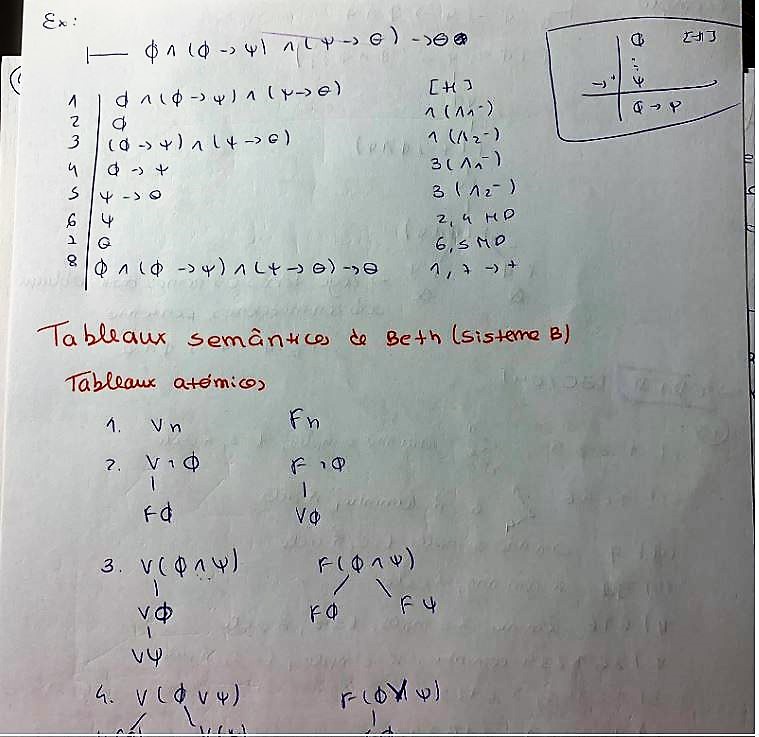 Ex:
⊢ ϕ ∧ (ϕ → ψ) ∧ (ψ → θ) → θ
[H]
ϕ
⋮
→⁺ ψ
ϕ → ψ
1 ϕ ∧ (ϕ → ψ) ∧ (ψ → θ) [H]
2 ϕ 1 (∧₁⁻)
3 (ϕ → ψ) ∧ (ψ → θ) 1 (∧₂⁻)
4 ϕ → ψ 3 (∧₁⁻)
5 ψ → θ 3 (∧₂⁻)
6 ψ 2, 4 MP
7 θ 6, 5 MP
8 ϕ ∧ (ϕ → ψ) ∧ (ψ → θ) → θ 1, 7 →⁺
Tableaux semânticos de Beth (sistema B)
Tableaux atómicos
1. Vn Fn
2. V¬ϕ F¬ϕ
Fϕ Vϕ
3. V(ϕ ∧ ψ) F(ϕ ∧ ψ)
Vϕ Fϕ Fψ
Vψ
4. V(ϕ ∨ ψ) F(ϕ ∨ ψ)